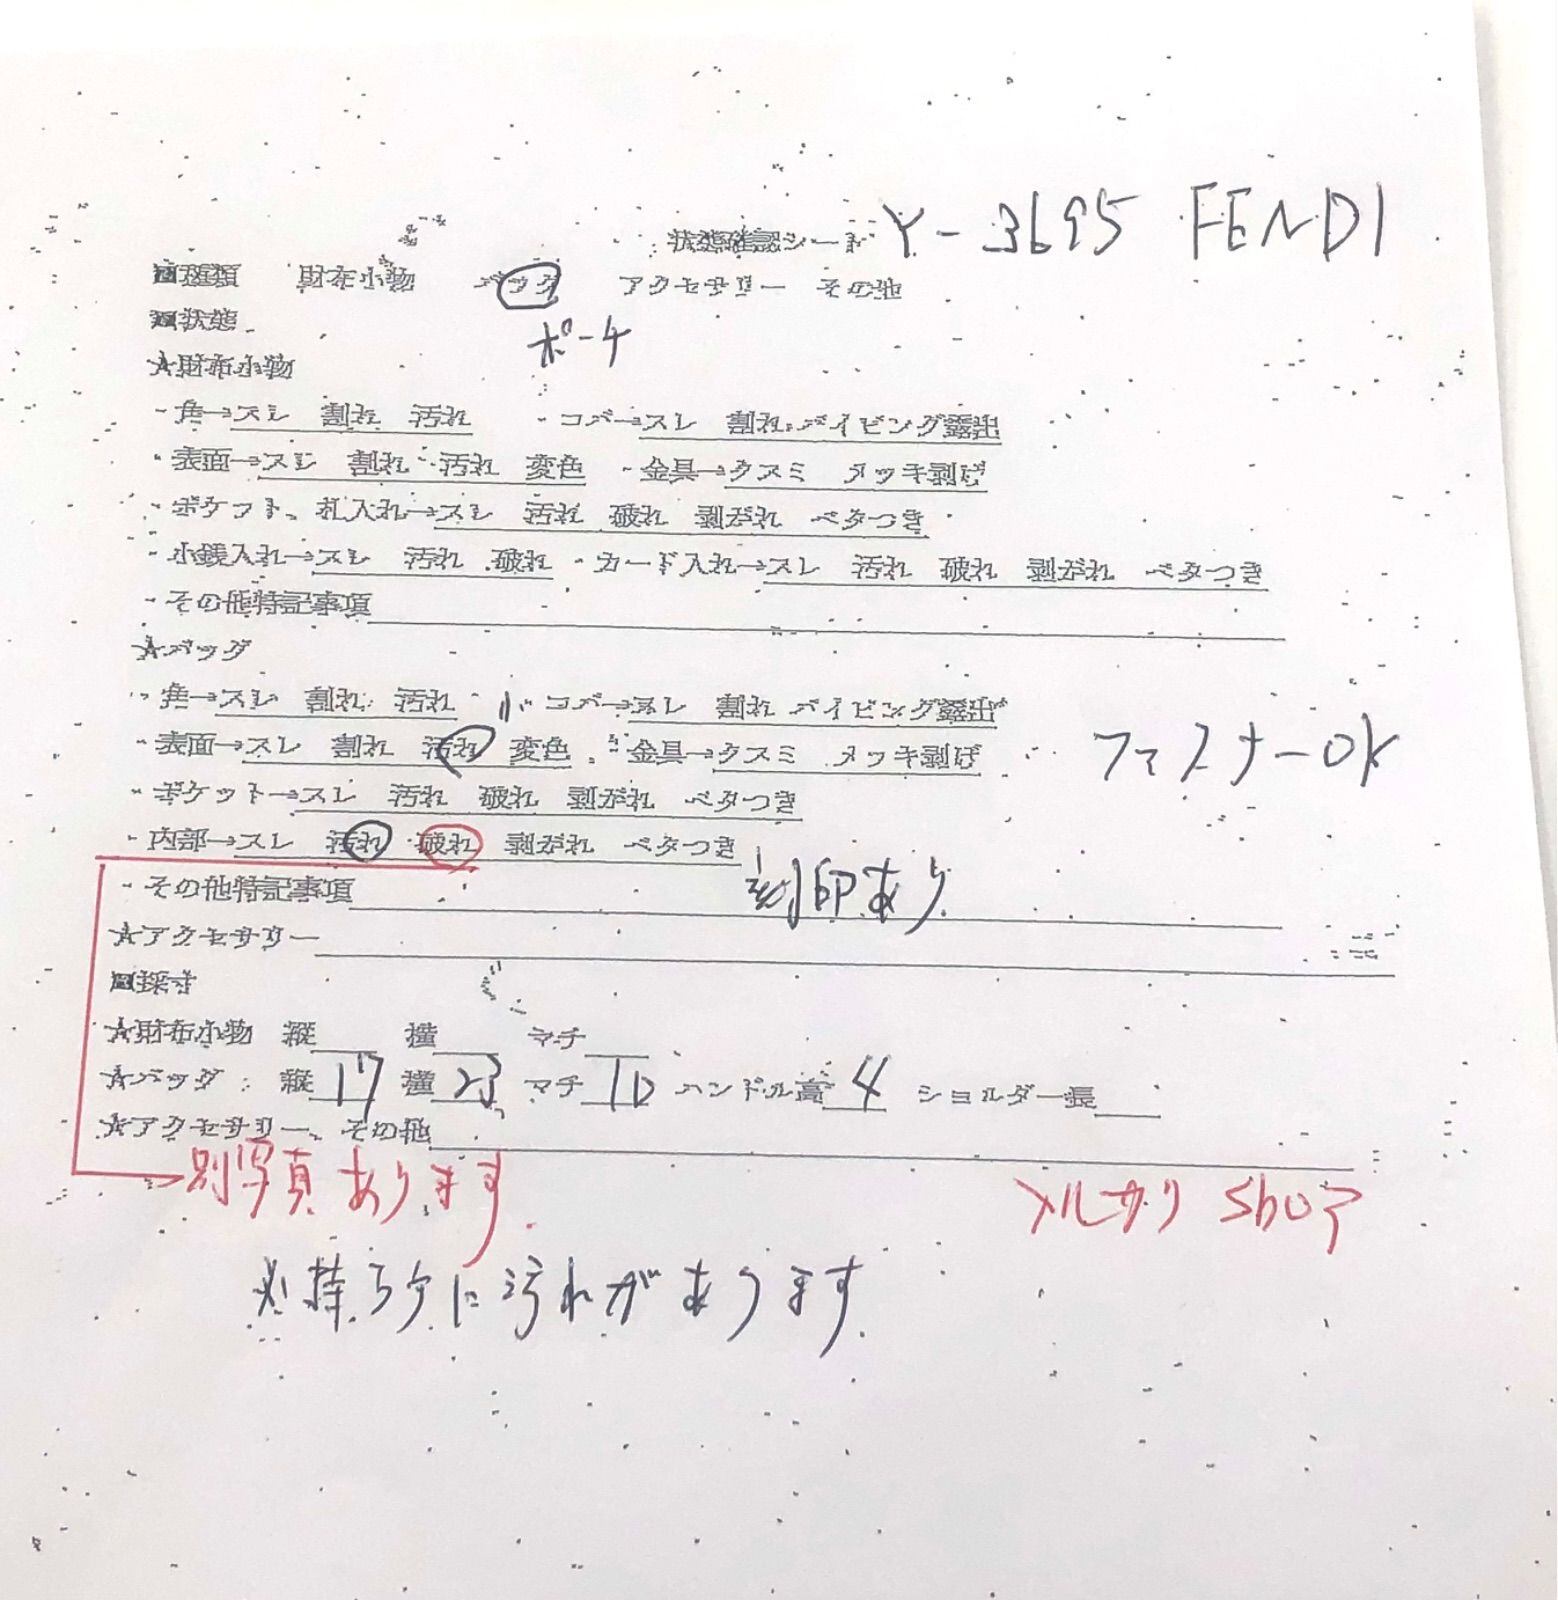 状態確認シート Y-3695 FENDI
■種類 財布小物 バッグ アクセサリー その他
■状態 ポーチ
★財布小物
・角→スレ 割れ 汚れ ・コバ→スレ 割れ パイピング露出
・表面→スレ 割れ 汚れ 変色 ・金具→クスミ メッキ剥げ
・ポケット、札入れ→スレ 汚れ 破れ 剥がれ ベタつき
・小銭入れ→スレ 汚れ 破れ ・カード入れ→スレ 汚れ 破れ 剥がれ ベタつき
・その他特記事項
★バッグ
・角→スレ 割れ 汚れ ・コバ→スレ 割れ パイピング露出
・表面→スレ 割れ 汚れ 変色 ・金具→クスミ メッキ剥げ ファスナーOK
・ポケット→スレ 汚れ 破れ 剥がれ ベタつき
・内部→スレ 汚れ 破れ 剥がれ ベタつき
・その他特記事項 刻印あり
★アクセサリー
■採寸
★財布小物 縦 横 マチ
★バッグ 縦 17 横 23 マチ 10 ハンドル高 4 ショルダー長
★アクセサリー、その他
別写真あります
メルカリ shop
※持ち手に汚れがあります